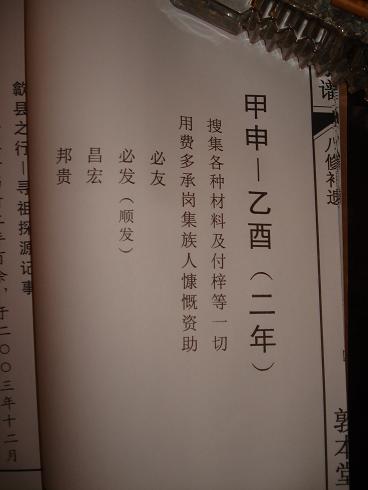 谱
八修补遗
敦本堂
甲申—乙酉（二年）
搜集各种材料及付梓等一切
用费多承岗集族人慷慨资助
必友
必发（顺发）
昌宏
邦贵
歙县之行—寻祖探源记事
于二〇〇三年十二月